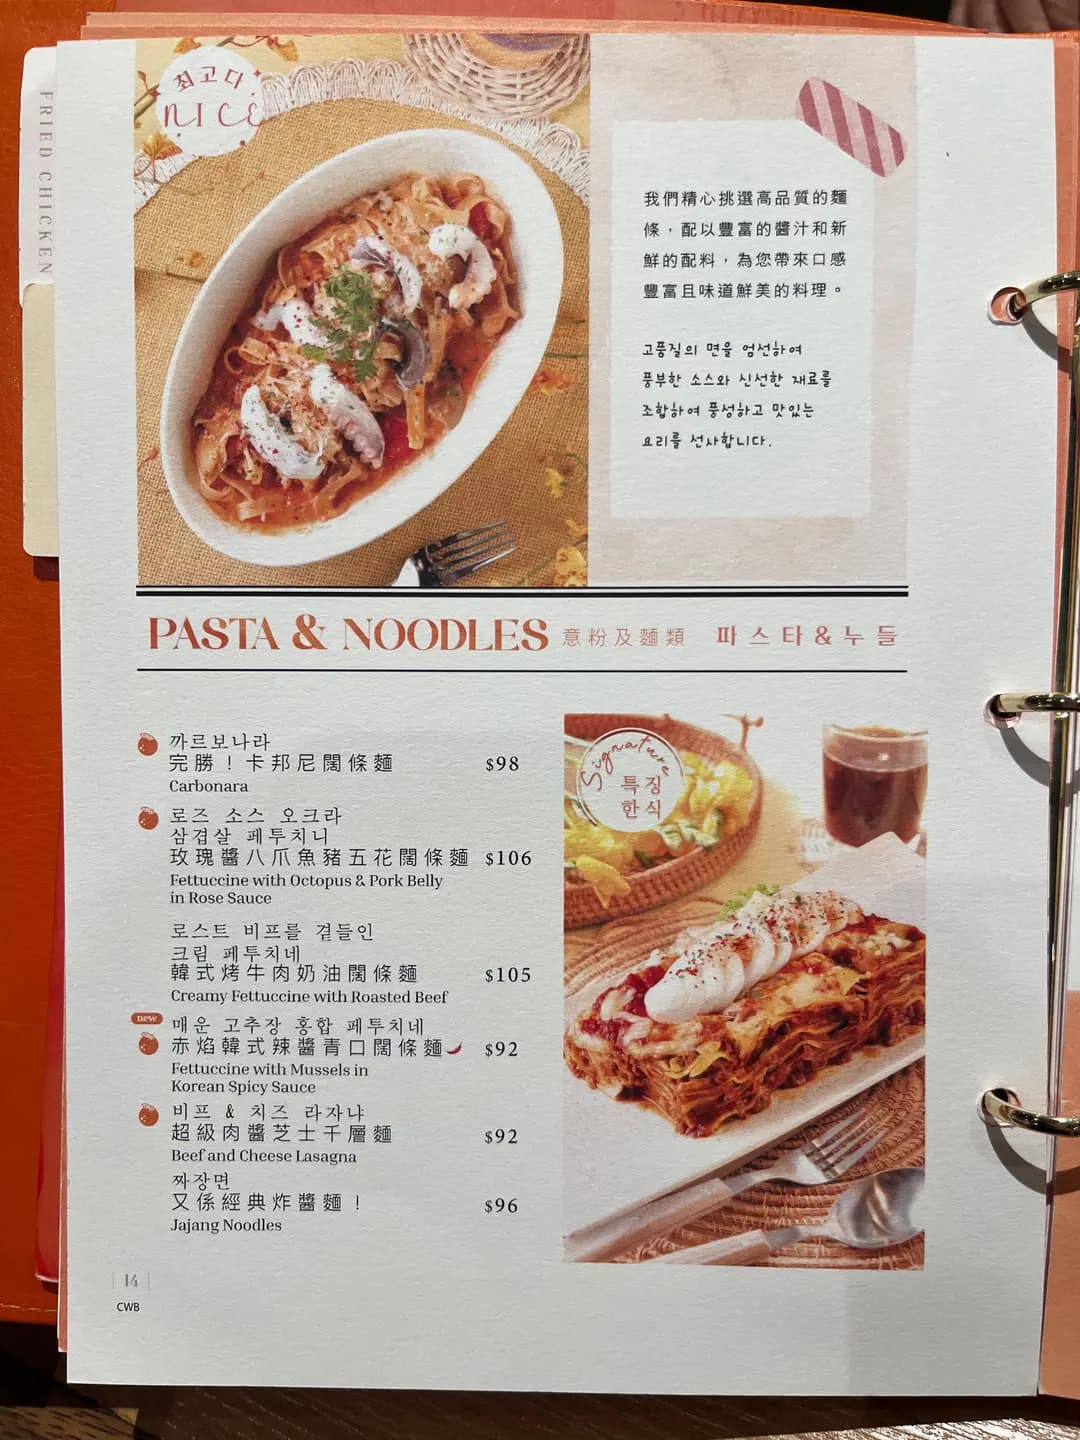 FRIED CHICKEN
최고다
NICE
我們精心挑選高品質的麵
條，配以豐富的醬汁和新
鮮的配料，為您帶來口感
豐富且味道鮮美的料理。
고품질의 면을 엄선하여
풍부한 소스와 신선한 재료를
조합하여 풍성하고 맛있는
요리를 선사합니다.
PASTA & NOODLES 意粉及麵類 파스타&누들
까르보나라
完勝！卡邦尼闊條麵 $98
Carbonara
로즈 소스 오크라
삼겹살 페투치니
玫瑰醬八爪魚豬五花闊條麵 $106
Fettuccine with Octopus & Pork Belly
in Rose Sauce
로스트 비프를 곁들인
크림 페투치네
韓式烤牛肉奶油闊條麵 $105
Creamy Fettuccine with Roasted Beef
new
매운 고추장 홍합 페투치네
赤焰韓式辣醬青口闊條麵 $92
Fettuccine with Mussels in
Korean Spicy Sauce
비프 & 치즈 라자냐
超級肉醬芝士千層麵 $92
Beef and Cheese Lasagna
짜장면
又係經典炸醬麵！ $96
Jajang Noodles
Signature
특징
한식
14
CWB